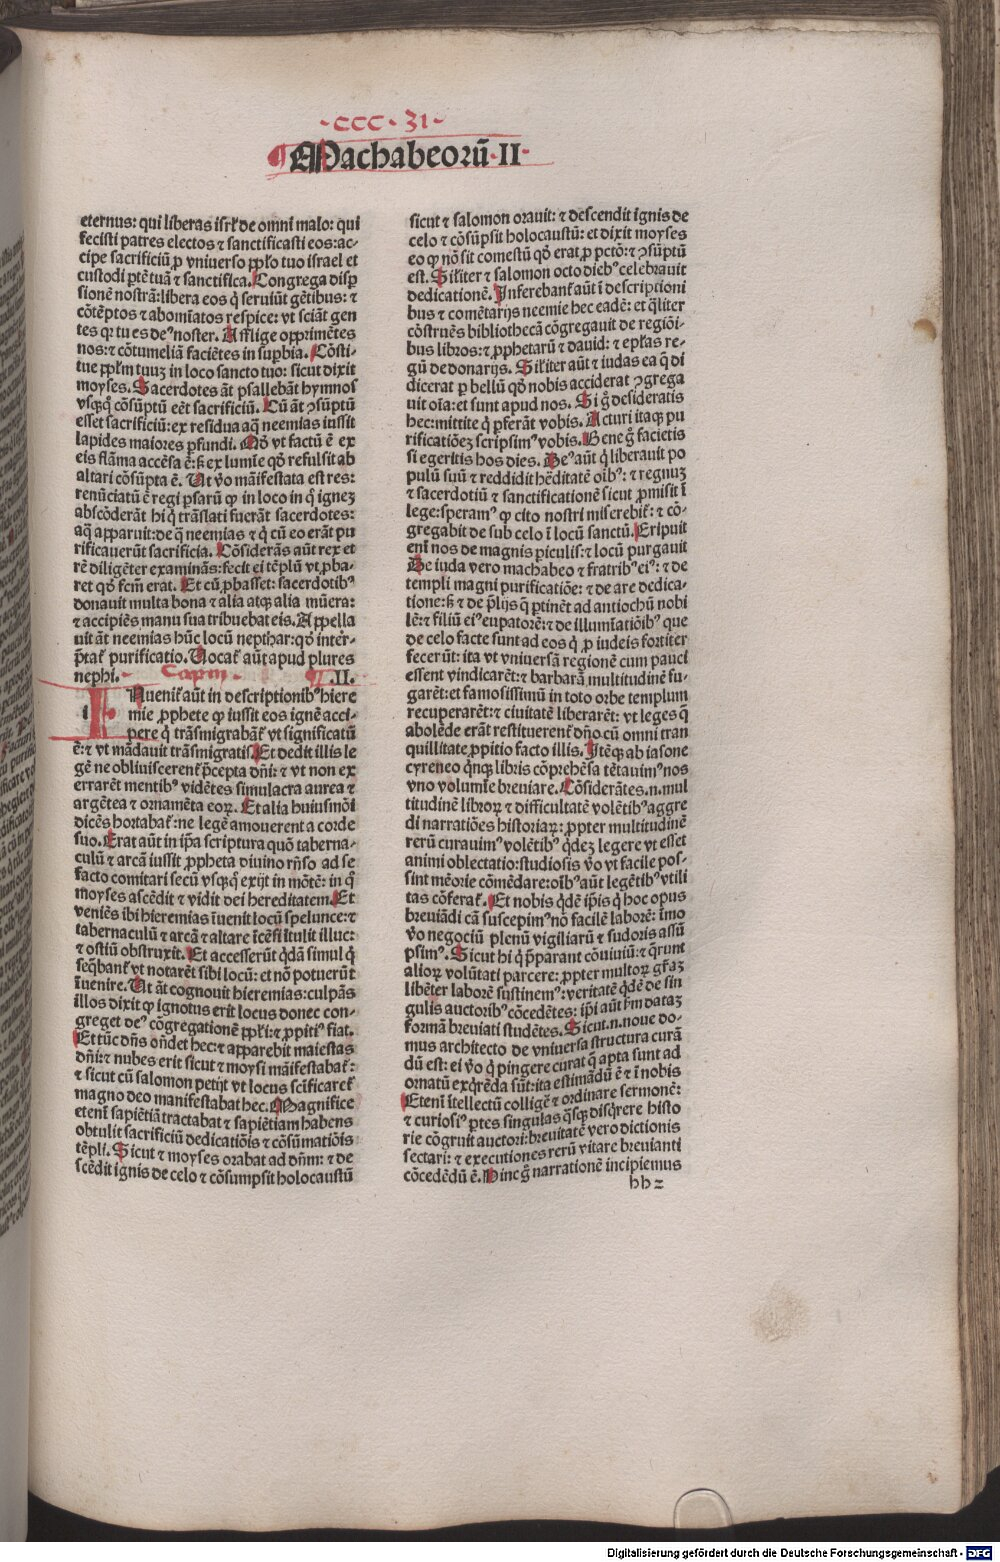 ·ccc·31·
Machabeorũ·II·
eternus: qui liberas isrƚ de omni malo: qui
fecisti patres electos ⁊ sanctificasti eos: ac-
cipe sacrificiũ ꝓ vniuerso ꝓpƚo tuo israel et
custodi ꝑtẽ tuã ⁊ sanctifica. Congrega disꝑ
sionẽ nostrã: libera eos q̃ seruiũt gẽtibus: ⁊
cõtẽptos ⁊ abomĩatos respice: vt sciãt gen
tes qꝛ tu es deꝰ noster. Afflige opprimẽtes
nos: ⁊ cõtumeliã faciẽtes in suꝑbia. Cõsti-
tue ppƚm tuuꝫ in loco sancto tuo: sicut dixit
moyses. Sacerdotes ãt psallebãt hymnos
vsqꝫq̃ cõsũptũ eẽt sacrificiũ. Cũ ãt ↄsũptũ
esset sacrificiũ: ex residua aq̃ neemias iussit
lapides maiores ꝑfundi. Qđ vt factũ ẽ ex
eis flãma accẽsa ẽ: ß ex lumĩe qđ refulsit ab
altari cõsũpta ẽ. Ut ṽo mãifestata est res:
renũciatũ ẽ regi ꝑsarũ ꝙ in loco in q̃ igneꝫ
abscõderãt hi q̃ trãslati fuerãt sacerdotes:
aq̃ apparuit: de q̃ neemias ⁊ q̃ cũ eo erãt pu
rificauerũt sacrificia. Cõsiderãs aũt rex et
rẽ diligẽter examinãs: fecit ei tẽplũ vt ꝓba-
ret qđ fcm̃ erat. Et cũ ꝓbasset: sacerdotibꝰ
donauit multa bona ⁊ alia atqꝫ alia mũera:
⁊ accipiẽs manu sua tribuebat eis. Appella
uit ãt neemias hũc locũ nepthar: qđ inter-
p̃tat̃ purificatio. Uocat̃ aũt apud plures
nephi. Capm .II.
INuenit̃ aũt in descriptionibꝰ hiere
mie ꝓphete ꝙ iussit eos ignẽ acci-
pere q̃ trãsmigrabãt̃ vt significatũ
ẽ: ⁊ vt mãdauit trãsmigratis. Et dedit illis le
gẽ ne obliuiscerent̃ p̃cepta dñi: ⁊ vt non ex
errarẽt mentibꝰ vidẽtes simulacra aurea ⁊
argẽtea ⁊ ornamẽta eoꝝ. Et alia huiusmõi
dicẽs hortabat̃: ne legẽ amouerent a corde
suo. Erat aũt in ip̃a scriptura quõ taberna-
culũ ⁊ arcã iussit ꝓpheta diuino rñso ad se
facto comitari secũ vsqꝫq̃ exijt in mõtẽ: in q̃
moyses ascẽdit ⁊ vidit dei hereditatem. Et
veniẽs ibi hieremias ĩuenit locũ spelunce: ⁊
tabernaculũ ⁊ arcã ⁊ altare ĩcẽsi ĩtulit illuc:
⁊ ostiũ obstruxit. Et accesserũt q̃dã simul q̃
seq̃bant̃ vt notarẽt sibi locũ: et nõ potuerũt
ĩuenire. Ut ãt cognouit hieremias: culpãs
illos dixit ꝙ ignotus erit locus donec con-
greget deꝰ cõgregationẽ ppƚi: ⁊ ꝓpitiꝰ fiat.
Et tũc dñs oñdet hec: ⁊ apparebit maiestas
dñi: ⁊ nubes erit sicut ⁊ moysi mãifestabat̃:
⁊ sicut cũ salomon petijt vt locus scĩficaret̃
magno deo manifestabat hec. Magnifice
eteni sapiẽtiã tractabat ⁊ sapiẽtiam habens
obtulit sacrificiũ dedicatiõis ⁊ cõsũmatiõis
tẽpli. Sicut ⁊ moyses orabat ad dñm: ⁊ de
scẽdit ignis de celo ⁊ cõsumpsit holocaustũ
sicut ⁊ salomon orauit: ⁊ descendit ignis de
celo ⁊ cõsũpsit holocaustũ: et dixit moyses
eo ꝙ nõ sit comestũ qđ erat ꝓ pctõ: ⁊ ↄsũptũ
est. Siƚiter ⁊ salomon octo diebꝰ celebrauit
dedicationẽ. Inferebant̃ aũt ĩ descriptioni
bus ⁊ comẽtarijs neemie hec eadẽ: et q̃liter
cõstruẽs bibliothecã cõgregauit de regiõi-
bus libros: ⁊ ꝓphetarũ ⁊ dauid: ⁊ epƚas re-
gũ de donarijs. Siƚiter aũt ⁊ iudas ea q̃ di
dicerat ꝑ bellũ qđ nobis acciderat ↄgrega
uit oĩa: et sunt apud nos. Si g̃ desideratis
hec: mittite q̃ ꝑferãt vobis. Acturi itaqꝫ pu
rificatiõeꝫ scripsimꝰ vobis. Bene g̃ facietis
si egeritis hos dies. Deꝰ aũt q̃ liberauit po
pulũ suũ ⁊ reddidit hẽditatẽ oĩbꝰ: ⁊ regnuꝫ
⁊ sacerdotiũ ⁊ sanctificationẽ sicut ꝓmisit ĩ
lege: speramꝰ ꝙ cito nostri miserebit̃: ⁊ cõ-
gregabit de sub celo ĩ locũ sanctũ. Eripuit
enĩ nos de magnis ꝑiculis: ⁊ locũ purgauit
De iuda vero machabeo ⁊ fratribꝰ eiꝰ: ⁊ de
templi magni purificatiõe: ⁊ de are dedica-
tione: ß ⁊ de p̃lijs q̃ ꝑtinẽt ad antiochũ nobi
lẽ: ⁊ filiũ eiꝰ eupatorẽ: ⁊ de illumĩatiõibꝰ que
de celo facte sunt ad eos q̃ ꝓ iudeis fortiter
fecerũt: ita vt vniuersã regionẽ cum pauci
essent vindicarẽt: ⁊ barbarã multitudinẽ fu-
garẽt: et famosissimũ in toto orbe templum
recuperarẽt: ⁊ ciuitatẽ liberarẽt: vt leges q̃
abolẽde erãt restituerent̃ dño cũ omni tran
quillitate ꝓpitio facto illis. Itẽqꝫ ab iasone
cyreneo q̃nqꝫ libris cõprehẽsa tẽtauimꝰ nos
vno volumĩe breuiare. Cõsiderãtes.n.mul
titudinẽ libroꝝ ⁊ difficultatẽ volẽtibꝰ aggre
di narratiões historiaꝝ: ꝓpter multitudinẽ
rerũ curauimꝰ volẽtibꝰ q̃deꝫ legere vt esset
animi oblectatio: studiosis ṽo vt facile pos-
sint mẽorie cõmẽdare: oĩbꝰ aũt legẽtibꝰ vtili
tas cõferat̃. Et nobis q̃dẽ ip̃is q̃ hoc opus
breuiãdi cã suscepimꝰ nõ facilẽ laborẽ: ĩmo
ṽo negociũ plenũ vigiliarũ ⁊ sudoris assũ
psimꝰ. Sicut hi q̃ p̃parant cõuiuiũ: ⁊ q̃runt
alioꝝ volũtati parcere: ꝓpter multoꝝ gr̃aꝫ
libẽter laborẽ sustinemꝰ: veritatẽ q̃dẽ de sin
gulis auctoribꝰ cõcedẽtes: ip̃i aũt ẜm dataꝫ
formã breuiati studẽtes. Sicut.n.noue do-
mus architecto de vniuersa structura curã
dũ est: ei ṽo q̃ pingere curat q̃ apta sunt ad
ornatũ exq̃rẽda sũt: ita estimãdũ ẽ ⁊ ĩ nobis
Etenĩ ĩtellectũ colligẽ ⁊ ordinare sermonẽ:
⁊ curiosiꝰ ꝑtes singulas q̃sqꝫ disq̃rere histo
rie cõgruit auctori: breuitatẽ vero dictionis
sectari: ⁊ executiones rerũ vitare breuianti
cõcedẽdũ ẽ. Hinc g̃ narrationẽ incipiemus
hh 2
Digitalisierung gefördert durch die Deutsche Forschungsgemeinschaft - DFG